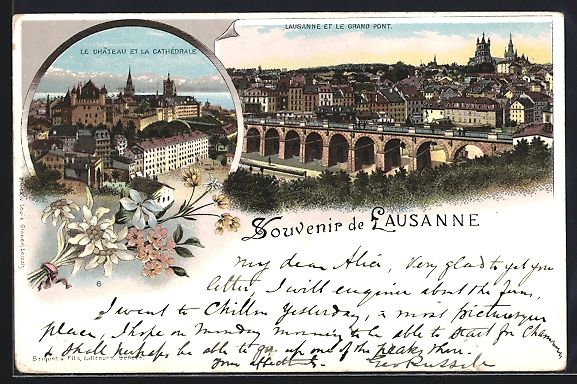 LE CHÂTEAU ET LA CATHÉDRALE
LAUSANNE ET LE GRAND PONT.
Souvenir de LAUSANNE
My dear Alice, Very glad to get your
letter I will enquire about the
I went to Chillon yesterday, a most picturesque
place, I hope on Monday morning to be able to start for
& shall perhaps be able to go up one of the peaks there.
Your affectionate
Geo Russell
6
Louis Glaser, Leipzig
Editeurs, Genève.